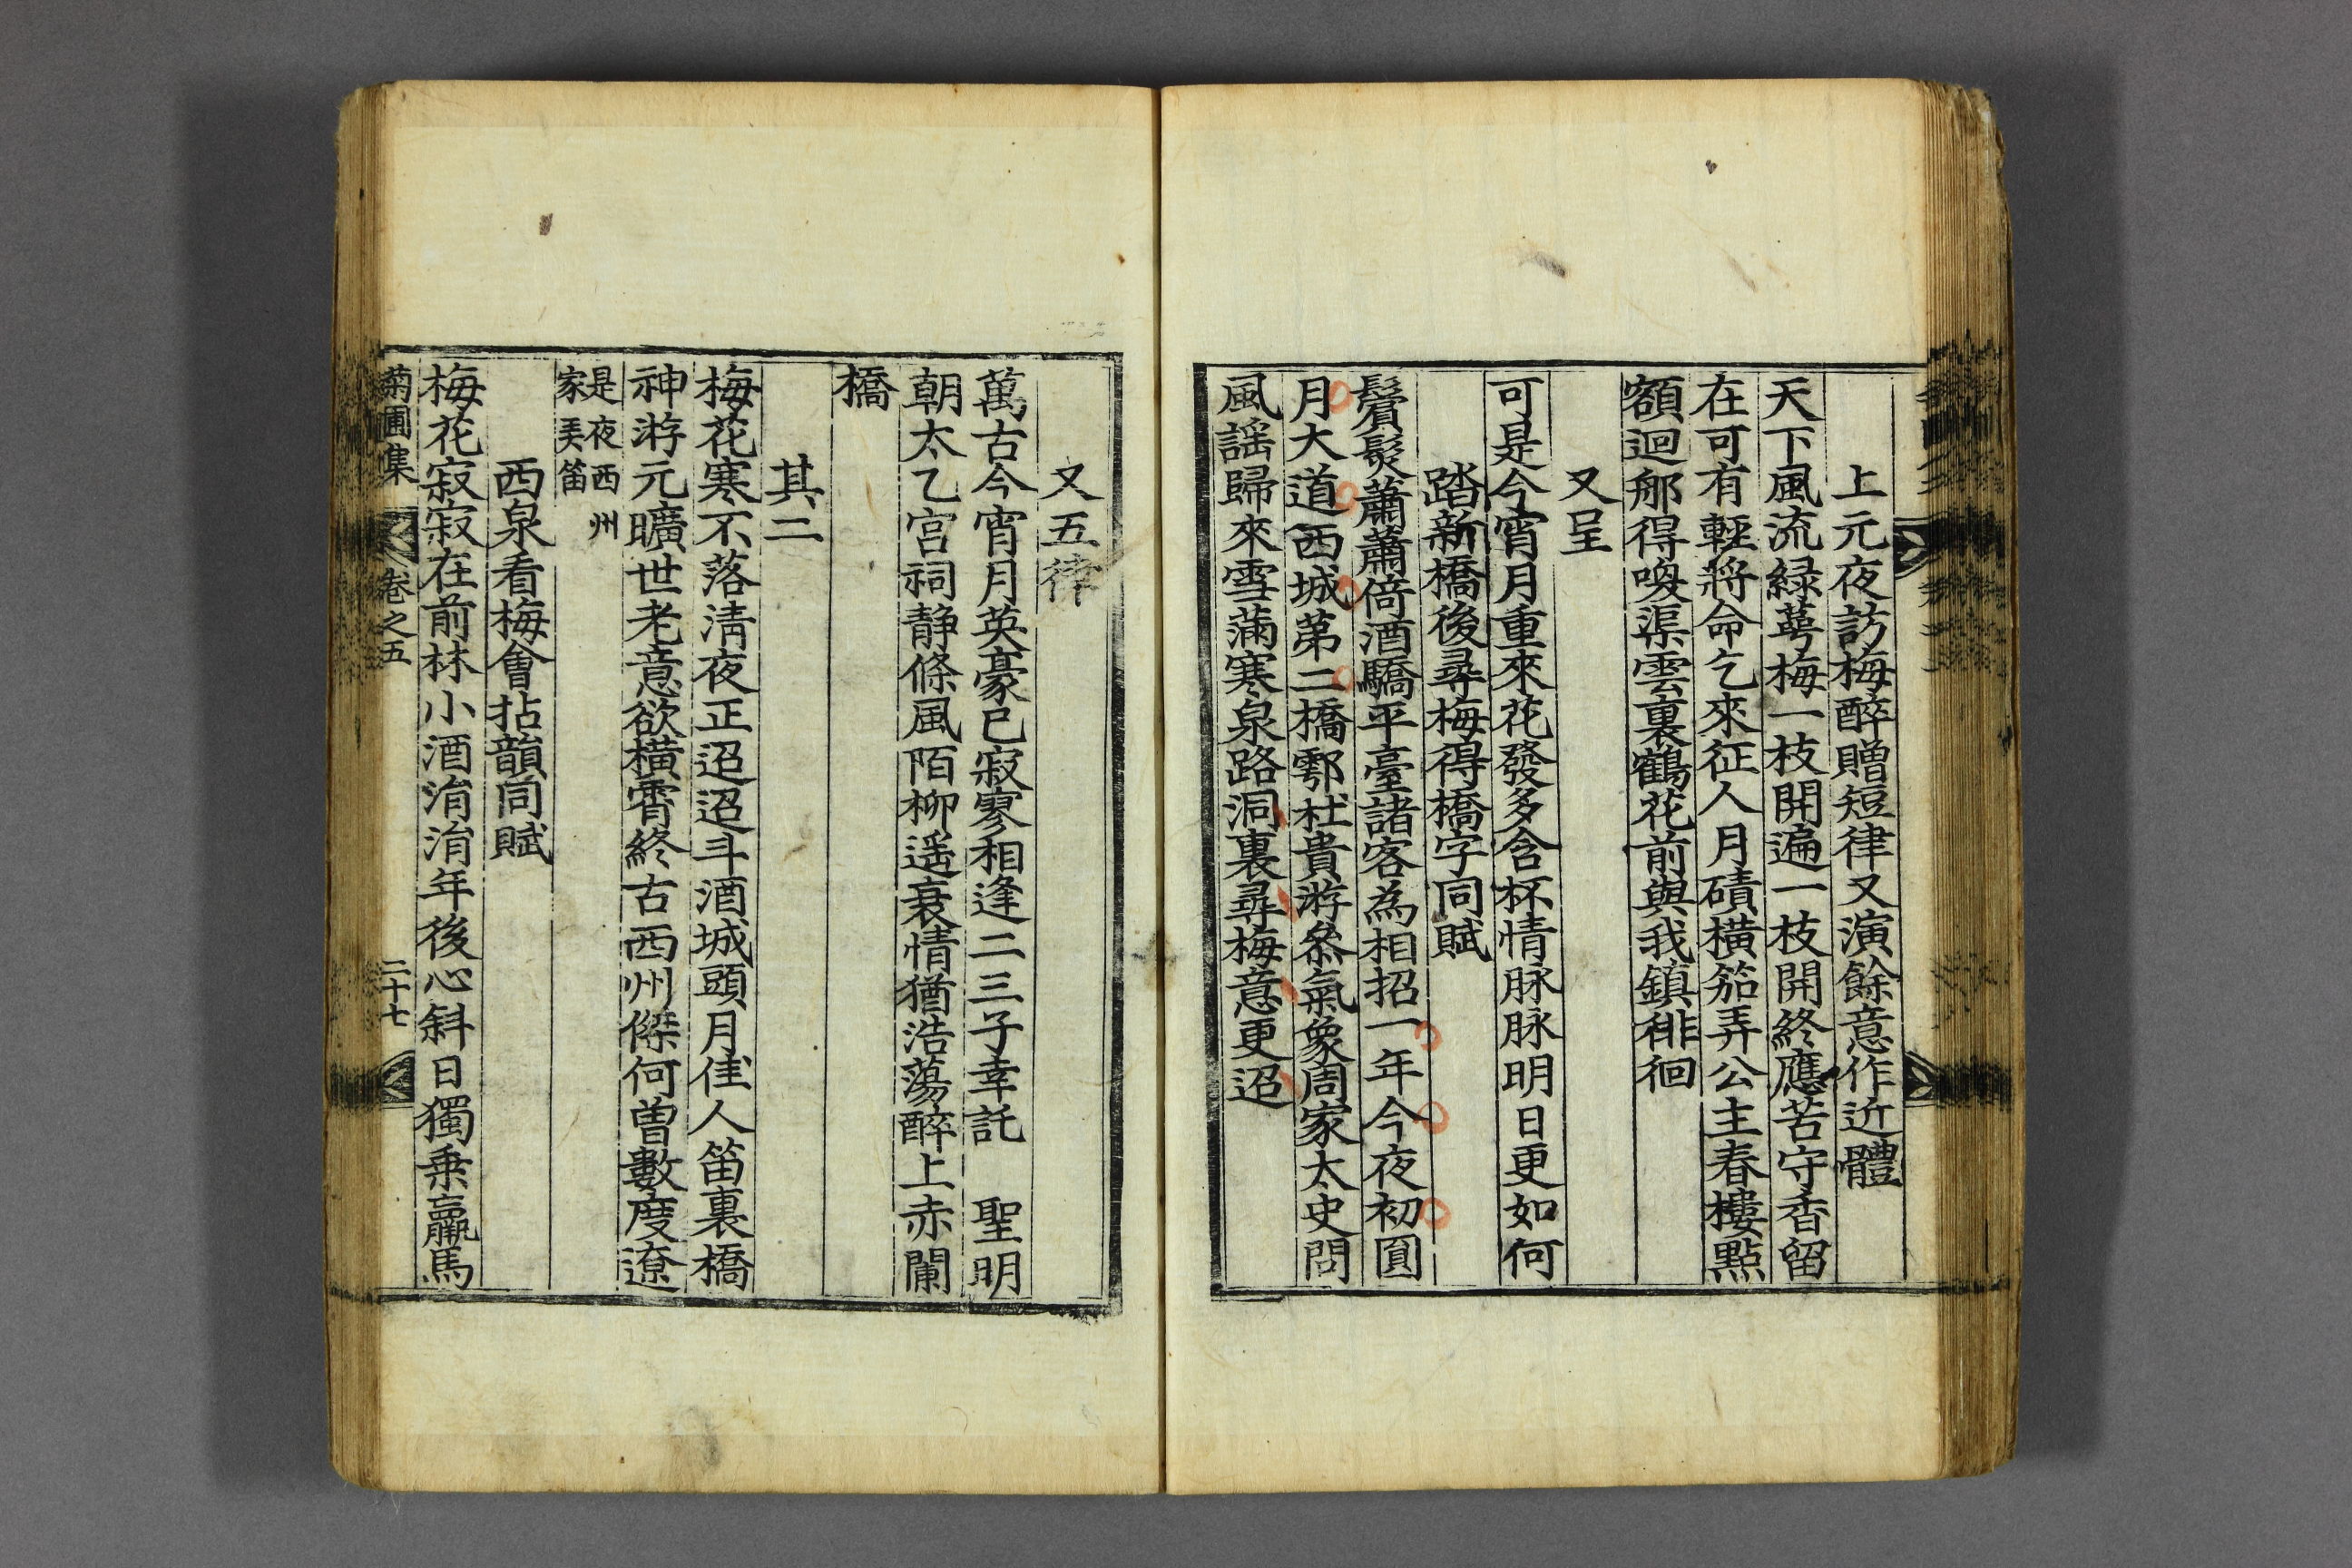 上元夜訪梅醉贈短律又演餘意作近體
天下風流緑萼梅一枝開遍一枝開終應苦守香留
在可有輕將命乞來征人月磧橫笳弄公主春樓點
額迴那得喚渠雲裏鶴花前與我鎮徘徊
又呈
可是今宵月重來花發多含杯情脉脉明日更如何
踏新橋後尋梅得橋字同賦
鬢髮蕭蕭倚酒驕平臺諸客為相招一年今夜初圓
月大道西城第二橋鄠杜貴游叅氣象周家太史問
風謡歸來雪滿寒泉路洞裏尋梅意更迢
又五律
萬古今宵月英豪已寂寥相逢二三子幸託 聖明
朝太乙宮祠静條風陌柳遥衰情猶浩蕩醉上赤闌
橋
其二
梅花寒不落淸夜正迢迢斗酒城頭月佳人笛裏橋
神游元曠世老意欲橫霄終古西州傑何曽數度遼
是夜西州
家美笛
西泉看梅會拈韻同賦
梅花寂寂在前林小酒涓涓年後心斜日獨乗羸馬
菊圃集 卷之五 二十七